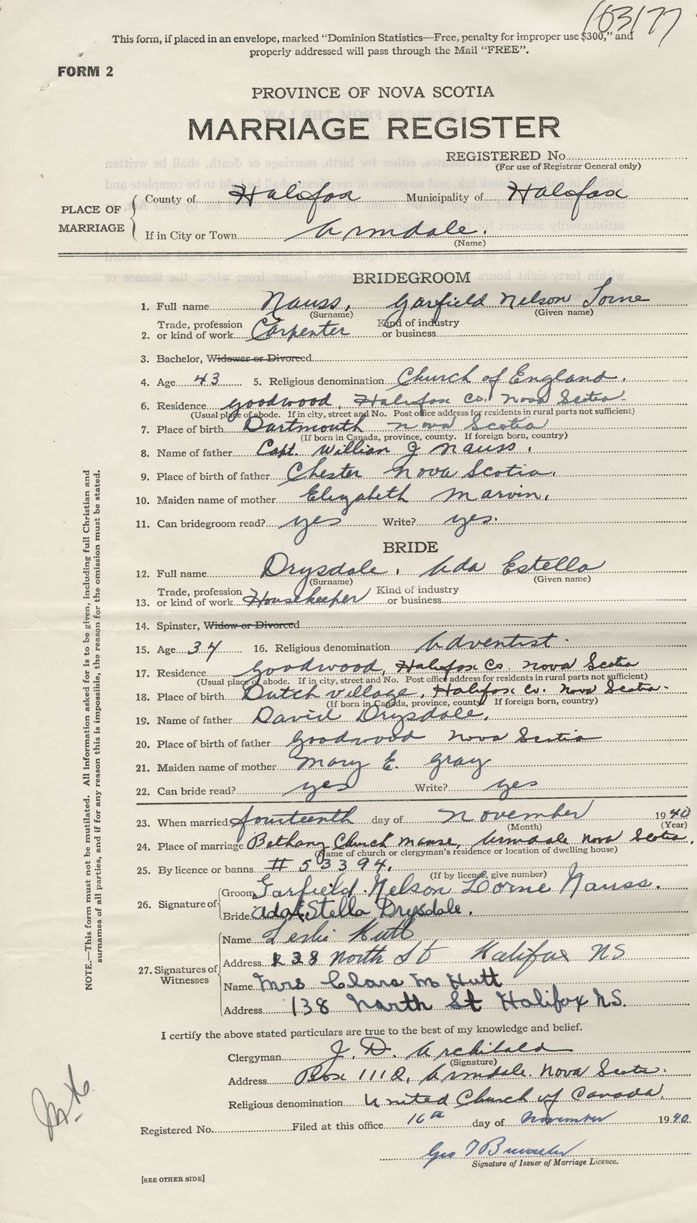 103177
This form, if placed in an envelope, marked "Dominion Statistics—Free, penalty for improper use $300," and
properly addressed will pass through the Mail "FREE".
FORM 2
PROVINCE OF NOVA SCOTIA
MARRIAGE REGISTER
REGISTERED No.
(For use of Registrar General only)
PLACE OF MARRIAGE
County of Halifax Municipality of Halifax
If in City or Town Armdale.
(Name)
BRIDEGROOM
1. Full name Nauss, Garfield Nelson Lorne
(Surname) (Given name)
2. Trade, profession or kind of work Carpenter Kind of industry or business
3. Bachelor, Widower or Divorced
4. Age 43 5. Religious denomination Church of England.
6. Residence Goodwood, Halifax Co. Nova Scotia
(Usual place of abode. If in city, street and No. Post office address for residents in rural parts not sufficient)
7. Place of birth Dartmouth Nova Scotia
(If born in Canada, province, county. If foreign born, country)
8. Name of father Capt. William J Nauss.
9. Place of birth of father Chester Nova Scotia.
10. Maiden name of mother Elizabeth Marvin.
11. Can bridegroom read? yes Write? yes.
BRIDE
12. Full name Drysdale, Ada Estella
(Surname) (Given name)
13. Trade, profession or kind of work Housekeeper Kind of industry or business
14. Spinster, Widow or Divorced
15. Age 34 16. Religious denomination Adventist.
17. Residence Goodwood, Halifax Co. Nova Scotia
(Usual place of abode. If in city, street and No. Post office address for residents in rural parts not sufficient)
18. Place of birth Dutch Village, Halifax Co. Nova Scotia.
(If born in Canada, province, county. If foreign born, country)
19. Name of father David Drysdale.
20. Place of birth of father Goodwood Nova Scotia
21. Maiden name of mother Mary E. Gray
22. Can bride read? yes Write? yes
23. When married fourteenth day of November 1940
(Month) (Year)
24. Place of marriage Bethany Church Manse, Armdale Nova Scotia.
(Name of church or clergyman's residence or location of dwelling house)
25. By licence or banns # 53394.
(If by licence, give number)
26. Signature of
Groom Garfield Nelson Lorne Nauss.
Bride Ada Estella Drysdale.
27. Signatures of Witnesses
Name Leslie Hutt
Address 138 North St Halifax NS
Name Mrs Clara M Hutt
Address 138 North St Halifax N.S.
I certify the above stated particulars are true to the best of my knowledge and belief.
Clergyman J. D. Archibald
(Signature)
Address Box 1112, Armdale. Nova Scotia.
Religious denomination United Church of Canada.
Registered No. Filed at this office 16th day of November 1940
Signature of Issuer of Marriage Licence.
[SEE OTHER SIDE]
NOTE.—This form must not be mutilated. All information asked for is to be given, including full Christian and
surnames of all parties, and if for any reason this is impossible, the reason for the omission must be stated.